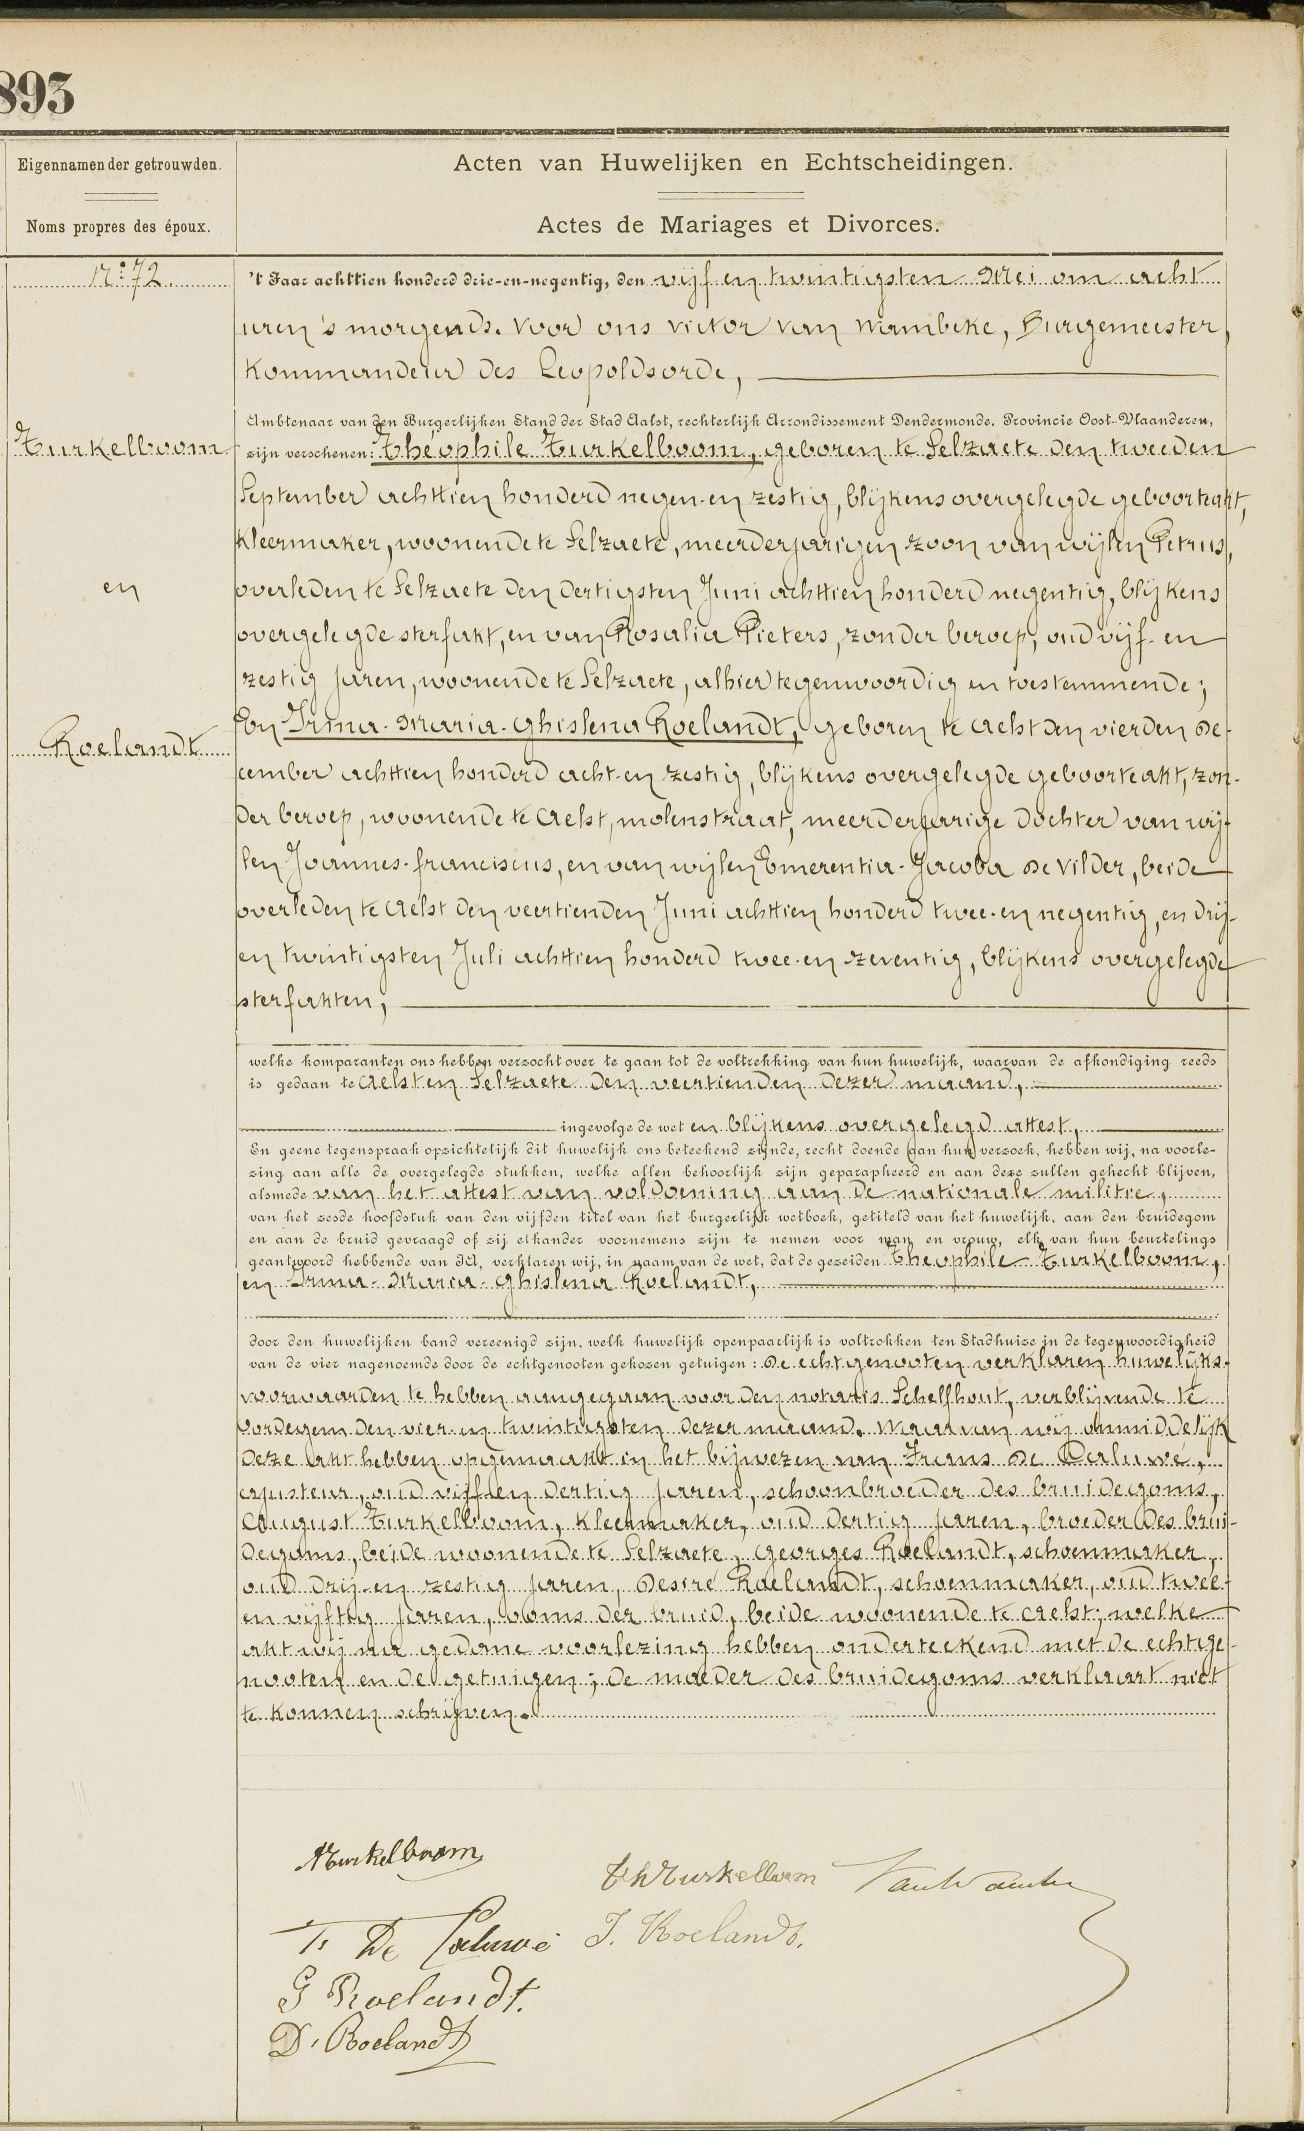 893
Eigennamen der getrouwden.
Noms propres des époux.
Acten van Huwelijken en Echtscheidingen.
Actes de Mariages et Divorces.
N:º 72.
Turkelboom
en
Roelandt
't Jaar achttien honderd drie-en-negentig, den vijf en twintigsten Mei om acht
uren 's morgends. Voor ons Victor Van Wambeke, Burgemeester,
Kommandeur des Leopoldsorde,
Ambtenaar van den Burgerlijken Stand der Stad Aalst, rechterlijk Arrondissement Dendermonde. Provincie Oost-Vlaanderen,
zijn verschenen: Théophile Turkelboom, geboren te Selzaete den tweeden
September achttien honderd negen-en zestig, blijkens overgelegde geboorteakt,
kleermaker, woonende te Selzaete, meerderjarigen zoon van wijlen Petrus,
overleden te Selzaete den dertigsten Juni achttien honderd negentig, blijkens
overgelegde sterfakt, en van Rosalia Pieters, zonder beroep, oud vijf-en
zestig jaren, woonende te Selzaete, alhier tegenwoordig en toestemmende;
En Irma-Maria-Ghislena Roelandt, geboren te Aelst den vierden De-
cember achttien honderd acht-en zestig, blijkens overgelegde geboorteakt, zon-
der beroep, woonende te Aelst, Molenstraat, meerderjarige dochter van wij-
len Joannes-Franciscus, en van wijlen Emerentia-Jacoba De Vilder, beide
overleden te Aelst den veertienden Juni achttien honderd twee-en negentig, en drij-
en twintigsten Juli achttien honderd twee-en zeventig, blijkens overgelegde
sterfakten,
welke komparanten ons hebben verzocht over te gaan tot de voltrekking van hun huwelijk, waarvan de afkondiging reeds
is gedaan te Aelst en Selzaete den veertienden dezer maand,
ingevolge de wet en blijkens overgelegd attest,
En geene tegenspraak opzichtelijk dit huwelijk ons beteekend zijnde, recht doende aan hun verzoek, hebben wij, na voorle-
zing aan alle de overgelegde stukken, welke allen behoorlijk zijn geparapheerd en aan deze zullen gehecht blijven,
alsmede van het attest van voldoening aan de nationale militie,
van het zesde hoofdstuk van den vijfden titel van het burgerlijk wetboek, getiteld van het huwelijk, aan den bruidegom
en aan de bruid gevraagd of zij elkander voornemens zijn te nemen voor man en vrouw, elk van hun beurtelings
geantwoord hebbende van JA, verklaren wij, in naam van de wet, dat de gezeiden Theophile Turkelboom,
en Irma-Maria-Ghislena Roelandt,
door den huwelijken band vereenigd zijn, welk huwelijk openpaarlijk is voltrokken ten Stadhuize in de tegenwoordigheid
van de vier nagenoemde door de echtgenooten gekozen getuigen: De echtgenooten verklaren huwelijks-
voorwaarden te hebben aangegaan voor den notaris Schelfhout, verblijvende te
Oordegem den vier-en twintigsten dezer maand. Waarvan wij onmiddelijk
deze akt hebben opgemaakt in het bijwezen van Frans De Caluwé,
ajusteur, oud vijf-en dertig jaren, schoonbroeder des bruidegoms,
August Turkelboom, kleermaker, oud dertig jaren, broeder des brui-
degoms, beide woonende te Selzaete, Georges Roelandt, schoenmaker,
oud drij-en zestig jaren, Desiré Roelandt, schoenmaker, oud twee-
en vijftig jaren, ooms der bruid, beide woonende te Aelst; welke
akt wij na gedane voorlezing hebben onderteekend met de echtge-
nooten en de getuigen; de moeder des bruidegoms verklaart niet
te konnen schrijven.
ATurkelboom
Th Turkelboom
VanWambeke
F. De Caluwé
I. Roelandt.
G Roelandt.
D. Roelandt